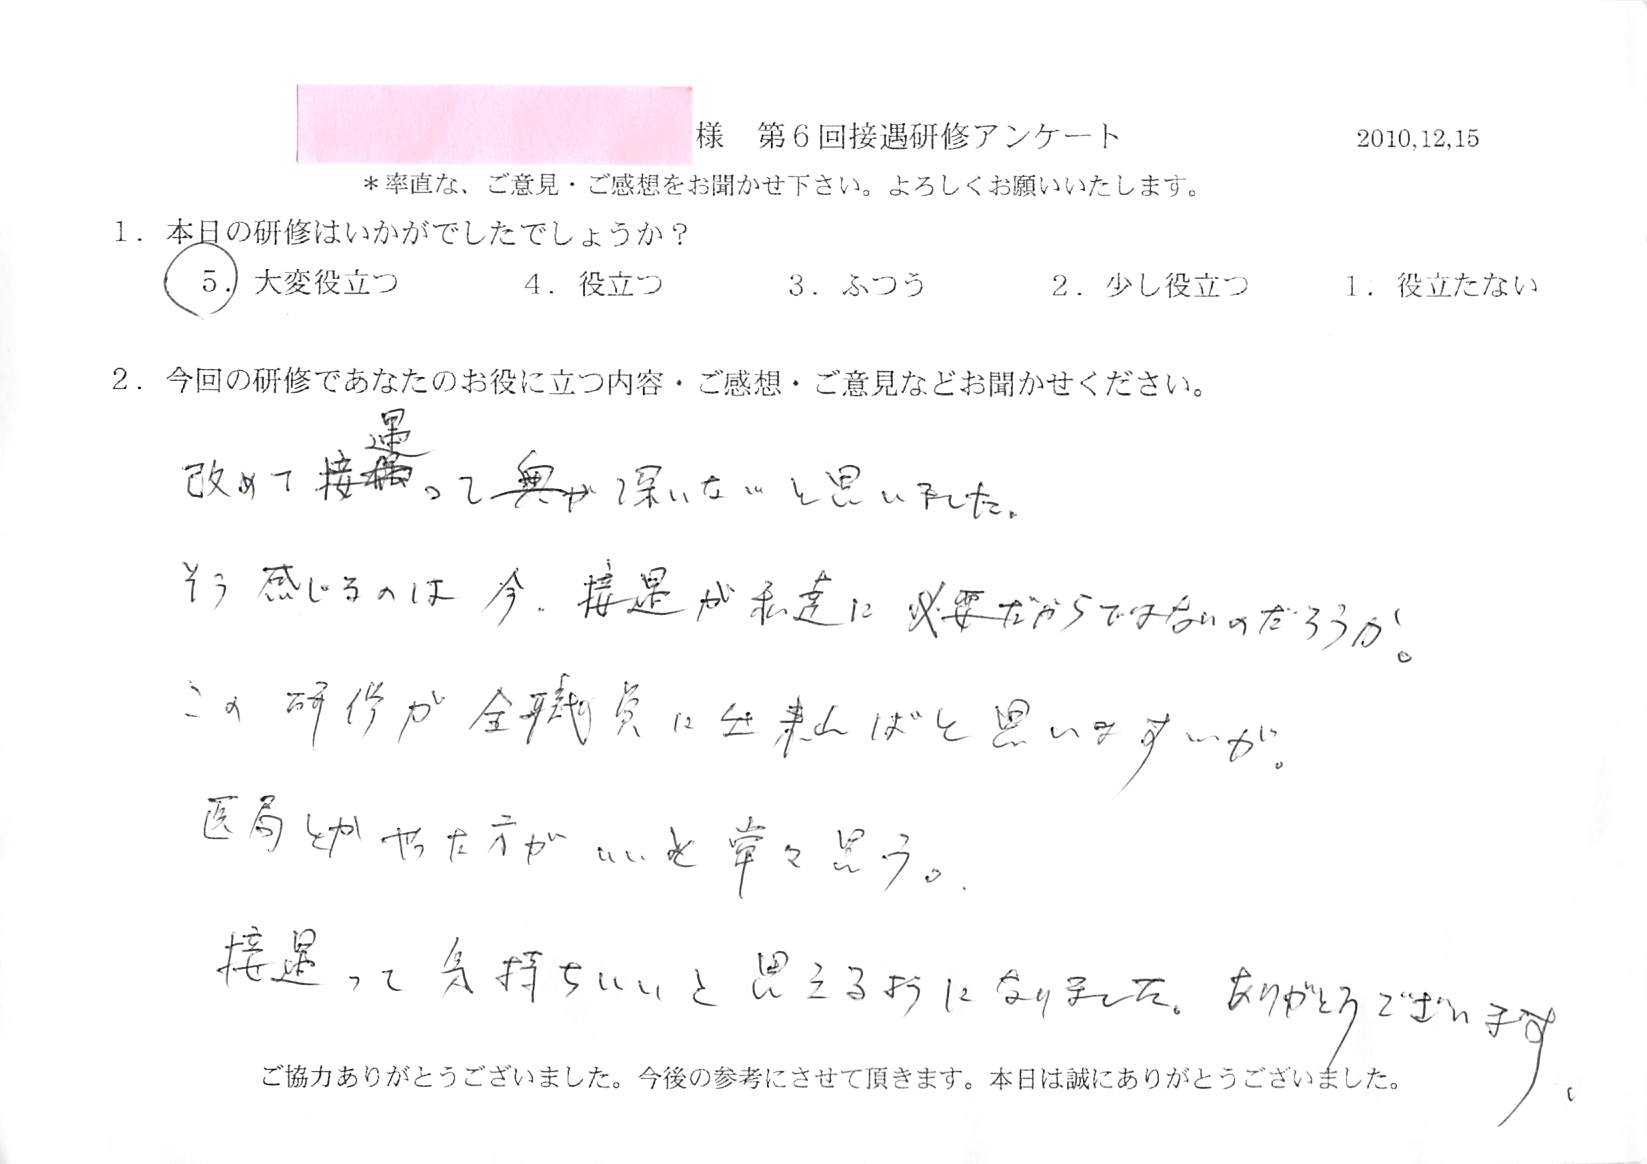 様 第6回接遇研修アンケート 2010,12,15
＊率直な、ご意見・ご感想をお聞かせ下さい。よろしくお願いいたします。
1．本日の研修はいかがでしたでしょうか？
5．大変役立つ 4．役立つ 3．ふつう 2．少し役立つ 1．役立たない
2．今回の研修であなたのお役に立つ内容・ご感想・ご意見などお聞かせください。
改めて接遇って奥が深いな…と思いました。
そう感じるのは今、接遇が私達に必要だからではないのだろうか。
この研修が全職員に出来ればと思います…が。
医局とかやった方がいいと常々思う。
接遇って気持ちいいと思えるようになりました。ありがとうございます。
ご協力ありがとうございました。今後の参考にさせて頂きます。本日は誠にありがとうございました。